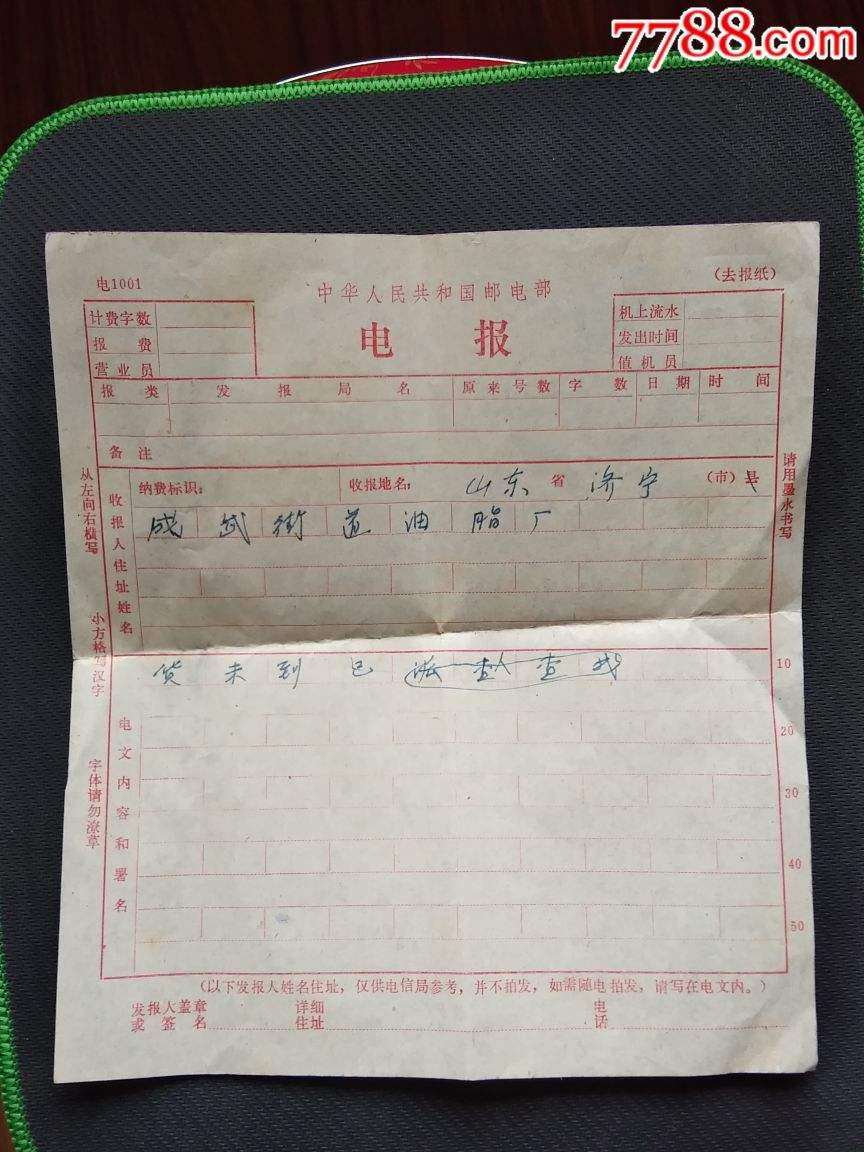 7788.com
电1001
中华人民共和国邮电部
(去报纸)
计费字数
报费
营业员
电报
机上流水
发出时间
值机员
报类 发报局名 原来号数 字数 日期 时间
备注
从左向右横写
小方格写汉字
字体请勿潦草
请用墨水书写
纳费标识: 收报地名: 山东 省 济宁 (市)县
收报人住址姓名
成武街道油脂厂
电文内容和署名
货未到已派人查找
10
20
30
40
50
(以下发报人姓名住址，仅供电信局参考，并不拍发，如需随电拍发，请写在电文内。)
发报人盖章 详细 电
或签名 住址 话